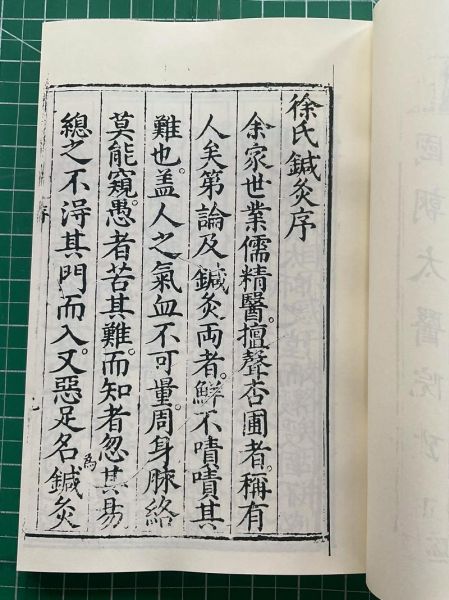 徐氏鍼灸序
余家世業儒精醫。擅聲杏圃者。稱有
人矣第論及鍼灸両者。鮮不嘖嘖其
難也。盖人之氣血不可量。周身脉絡
莫能窺。愚者苦其難。而知者忽其易
為
總之不淂其門而入。又惡足名鍼灸
國朝太醫院